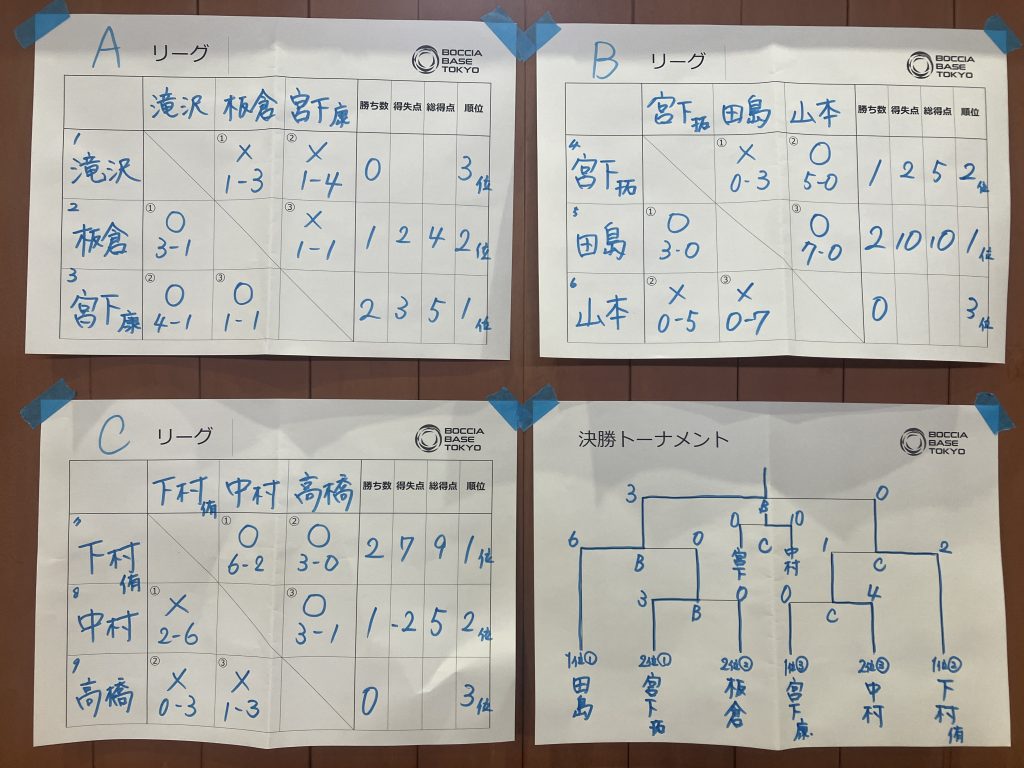 A リーグ
BOCCIA
BASE
TOKYO
滝沢 板倉 宮下康 勝ち数 得失点 総得点 順位
1 滝沢 ① × 1-3 ② × 1-4 0 3位
2 板倉 ① ○ 3-1 ③ × 1-1 1 2 4 2位
3 宮下康 ② ○ 4-1 ③ ○ 1-1 2 3 5 1位
B リーグ
BOCCIA
BASE
TOKYO
宮下拓 田島 山本 勝ち数 得失点 総得点 順位
4 宮下拓 ① × 0-3 ② ○ 5-0 1 2 5 2位
5 田島 ① ○ 3-0 ③ ○ 7-0 2 10 10 1位
6 山本 ② × 0-5 ③ × 0-7 0 3位
C リーグ
BOCCIA
BASE
TOKYO
下村侑 中村 高橋 勝ち数 得失点 総得点 順位
7 下村侑 ① ○ 6-2 ② ○ 3-0 2 7 9 1位
8 中村 ① × 2-6 ③ ○ 3-1 1 -2 5 2位
9 高橋 ② × 0-3 ③ × 1-3 0 3位
決勝トーナメント
BOCCIA
BASE
TOKYO
3 B 0
6 0 0 10 1 2
B 宮下 C 中村 C
3 0 0 4
B C
1位① 2位① 2位② 1位③ 2位③ 1位②
田島 宮下拓 板倉 宮下康 中村 下村侑